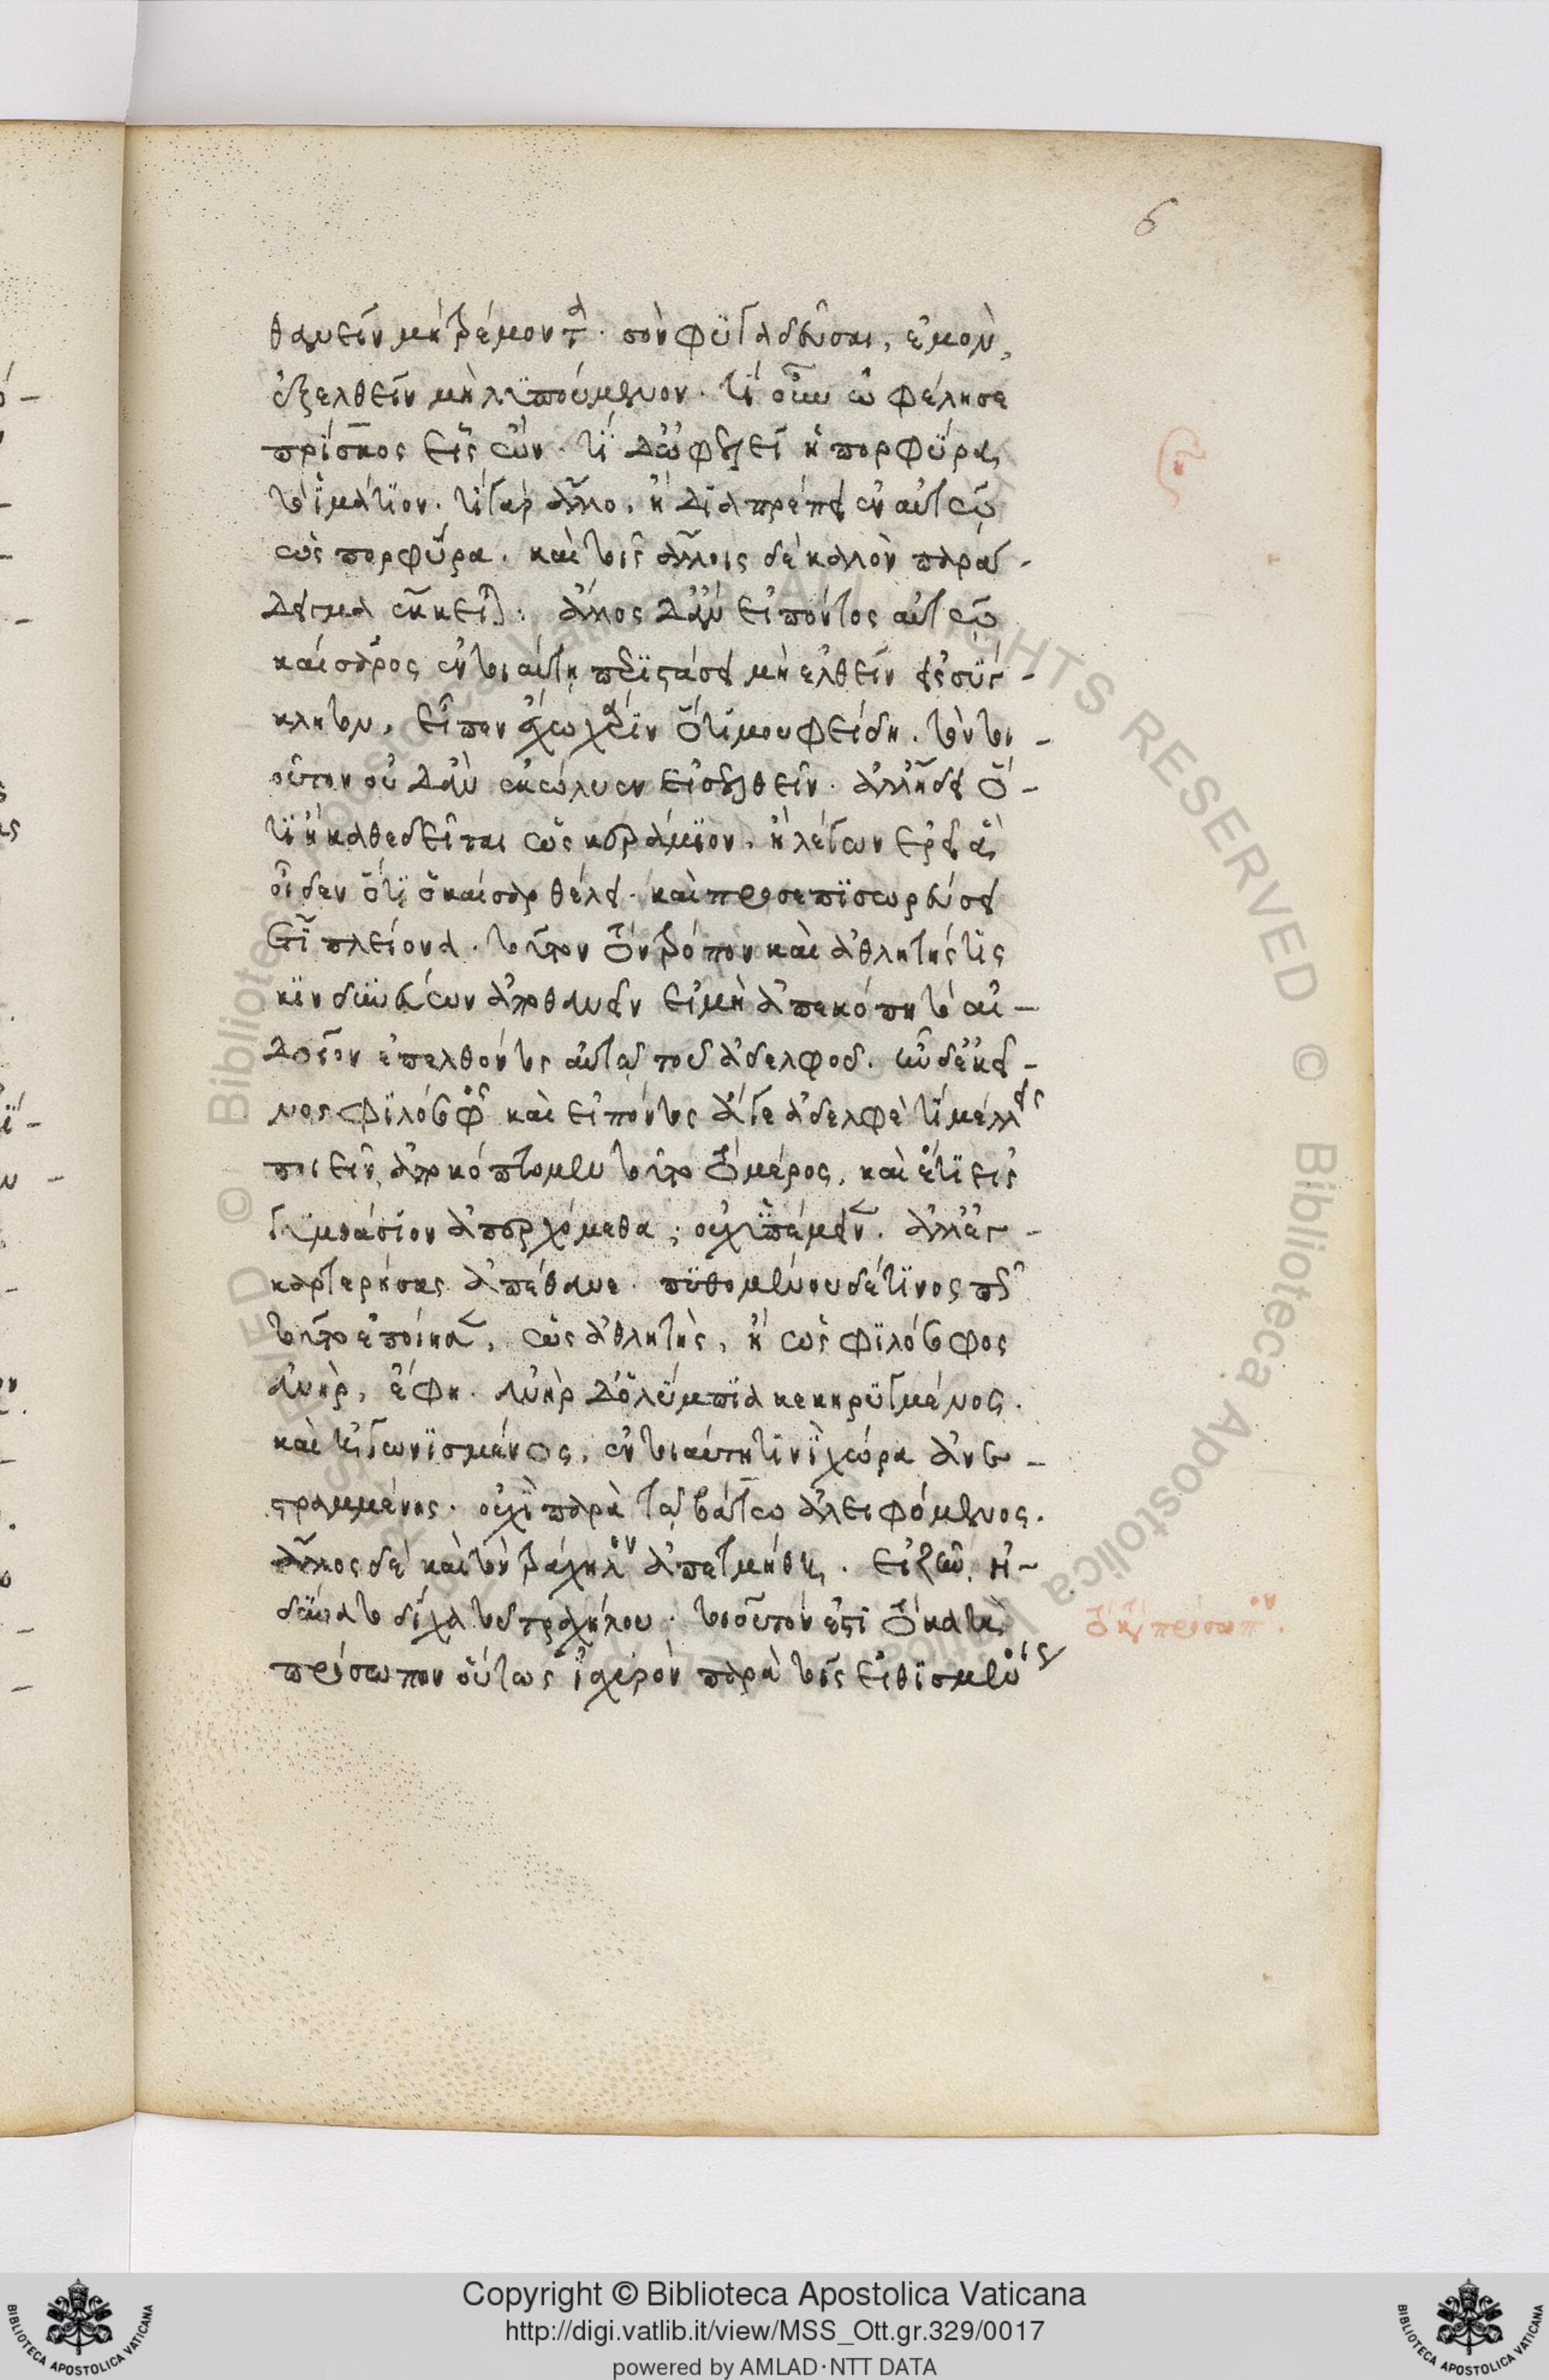 θανεῖν μὴ τρέμοντα· σὸν φυγαδεῦσαι, ἐμὸν,
ἐξελθεῖν μὴ λυπούμενον. τί οὖν ὠφέλησε
πρίσκος εἷς ὤν· τί δ' ὠφελεῖ ἡ πορφύρα,
τὸ ἱμάτιον. τί γὰρ ἄλλο, ἢ διαπρέπει ἐν αὐτῷ
ὡς πορφύρα. καὶ τοῖς ἄλλοις δὲ καλὸν παρά-
δειγμα ἔκκειται: ἄλλος δ' ἂν εἰπόντος αὐτῷ
καίσαρος ἐν τοιαύτη περιστάσει μὴ ἐλθεῖν εἰς σύγ-
κλητον, εἶπεν ἔχω χάριν ὅτί μου φείδη. τὸν τοι-
οῦτον οὐδ' ἂν ἐκώλυεν εἰσελθεῖν. ἀλλ' ἤδει ὅ-
τι ἢ καθεδεῖται ὡς κεράμιον. ἢ λέγων ἐρεῖ ἃ
οἶδεν ὅτι ὁ καίσαρ θέλει· καὶ προσεπισωρεύσει
ἔτι πλείονα. τοῦτον τὸν τρόπον καὶ ἀθλητής τις
κινδυνεύων ἀποθανεῖν εἰ μὴ ἀπεκόπη τὸ αἰ-
δοῖον ἐπελθόντος αὐτῷ τοῦ ἀδελφοῦ. ἦν δὲ ἐκεῖ-
νος φιλόσοφος καὶ εἰπόντος ἄγε ἀδελφὲ τί μέλλεις
ποιεῖν, ἀποκόπτομεν τοῦτο τὸ μέρος, καὶ ἔτι εἰς
γυμνάσιον ἀπερχόμεθα; οὐχ ὑπέμεινεν. ἀλλ' ἐγ-
καρτερήσας ἀπέθανε. πυθομένου δέ τινος πῶς
τοῦτο ἐποίησεν, ὡς ἀθλητὴς, ἢ ὡς φιλόσοφος
ἀνὴρ, ἔφη. ἀνὴρ δ' ὀλύμπια κεκηρυγμένος.
καὶ ἠγωνισμένος, ἐν τοιαύτη τινὶ χώρα ἀνε-
στραμμένος. οὐχὶ παρὰ τῷ βάτωνι ἀλειφόμενος.
ἄλλος δὲ καὶ τὸν τράχηλον ἀπετμήθη. εἰ ζῶν ἠ-
δύνατο δίχα τοῦ τραχήλου· τοιοῦτόν ἐστι τὸ κατὰ
πρόσωπον οὕτως ἰσχυρὸν παρὰ τοῖς εἰθισμένοις
τὸ κατὰ πρόσωπον.